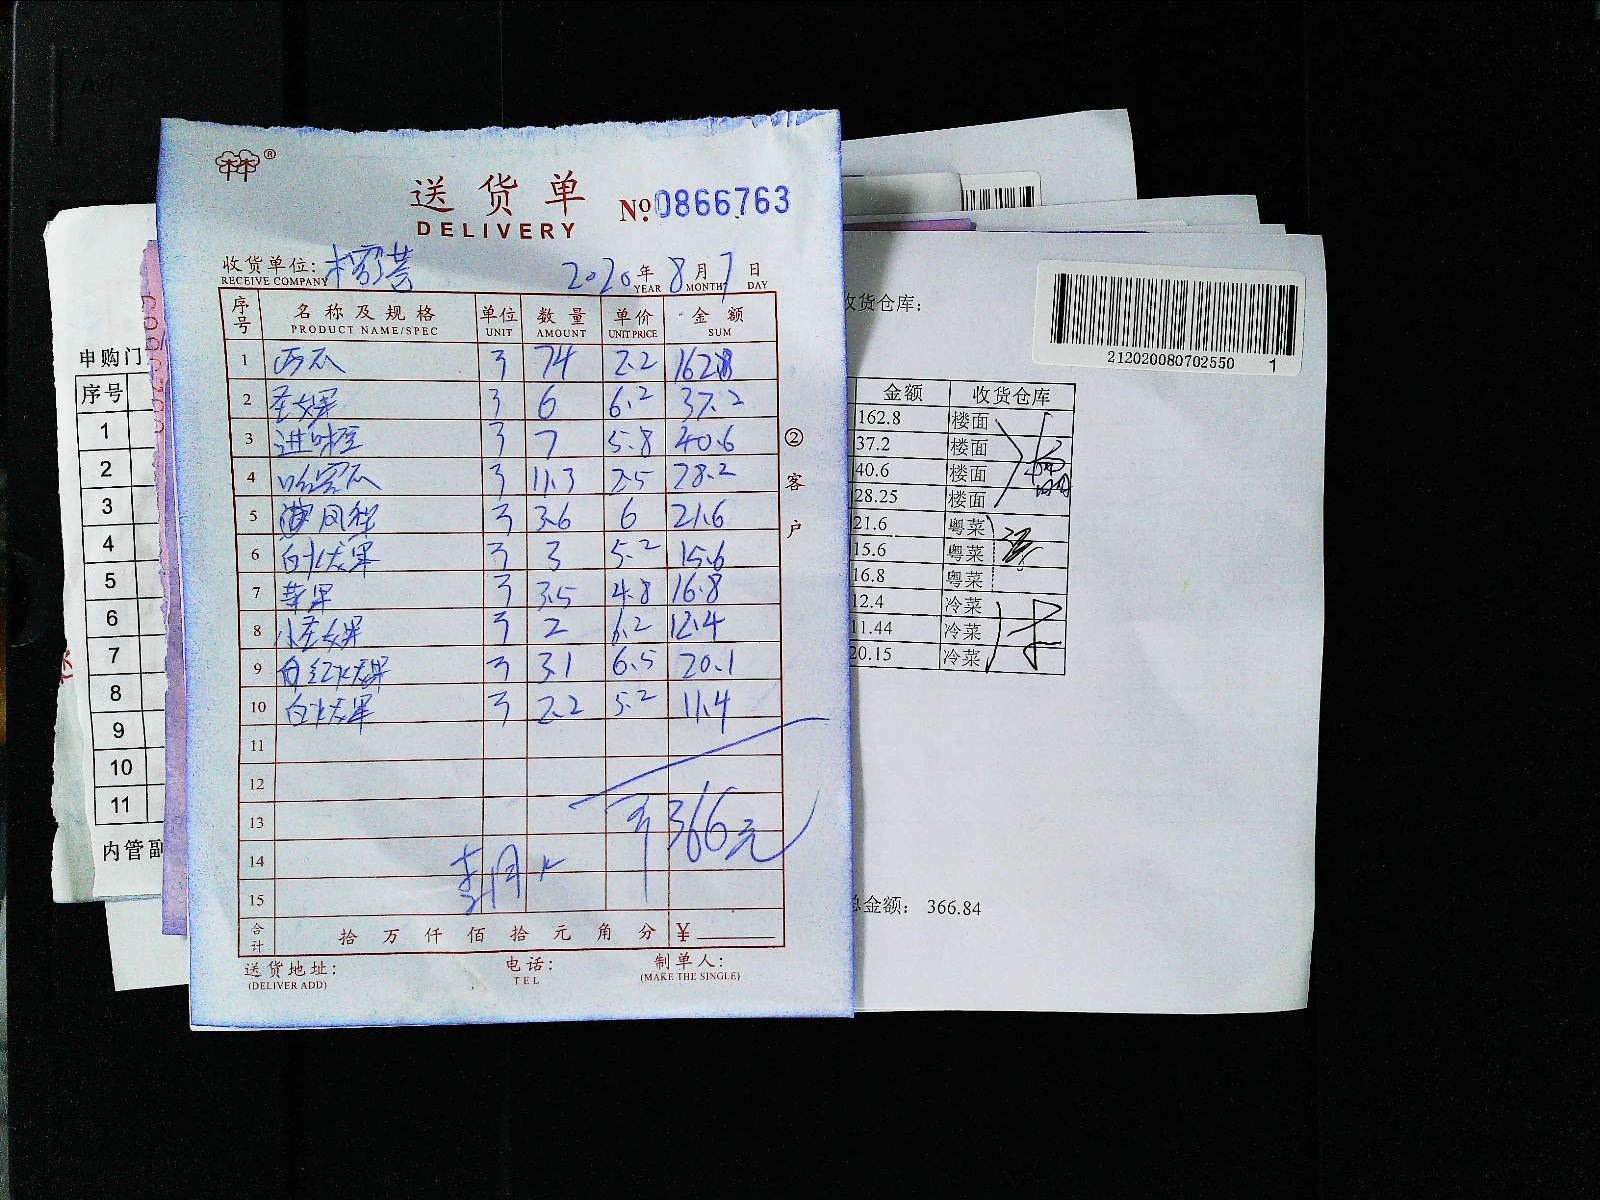 送货单
DELIVERY
№ 0866763
收货单位:
RECEIVE COMPANY
2020年 8月 7日
YEAR MONTH DAY
序号 名称及规格 单位 数量 单价 金额
PRODUCT NAME/SPEC UNIT AMOUNT UNIT PRICE SUM
1 西瓜 74 2.2 162.8
2 圣女果 6 6.2 37.2
3 进味橙 7 5.8 40.6
4 哈密瓜 11.3 2.5 28.2
5 风梨 3.6 6 21.6
6 白火龙果 3 5.2 15.6
7 苹果 3.5 4.8 16.8
8 小圣女果 2 6.2 12.4
9 红火龙果 3.1 6.5 20.1
10 白火龙果 2.2 5.2 11.4
11
12
13
14
15
366元
合计 拾万仟佰拾元角分 ¥
送货地址: 电话: 制单人:
(DELIVER ADD) TEL (MAKE THE SINGLE)
②客户
申购门
序号
1
2
3
4
5
6
7
8
9
10
11
内管副
收货仓库:
212020080702550 1
金额 收货仓库
162.8 楼面
37.2 楼面
40.6 楼面
28.25 楼面
21.6 粤菜
15.6 粤菜
16.8 粤菜
12.4 冷菜
11.44 冷菜
20.15 冷菜
总金额: 366.84